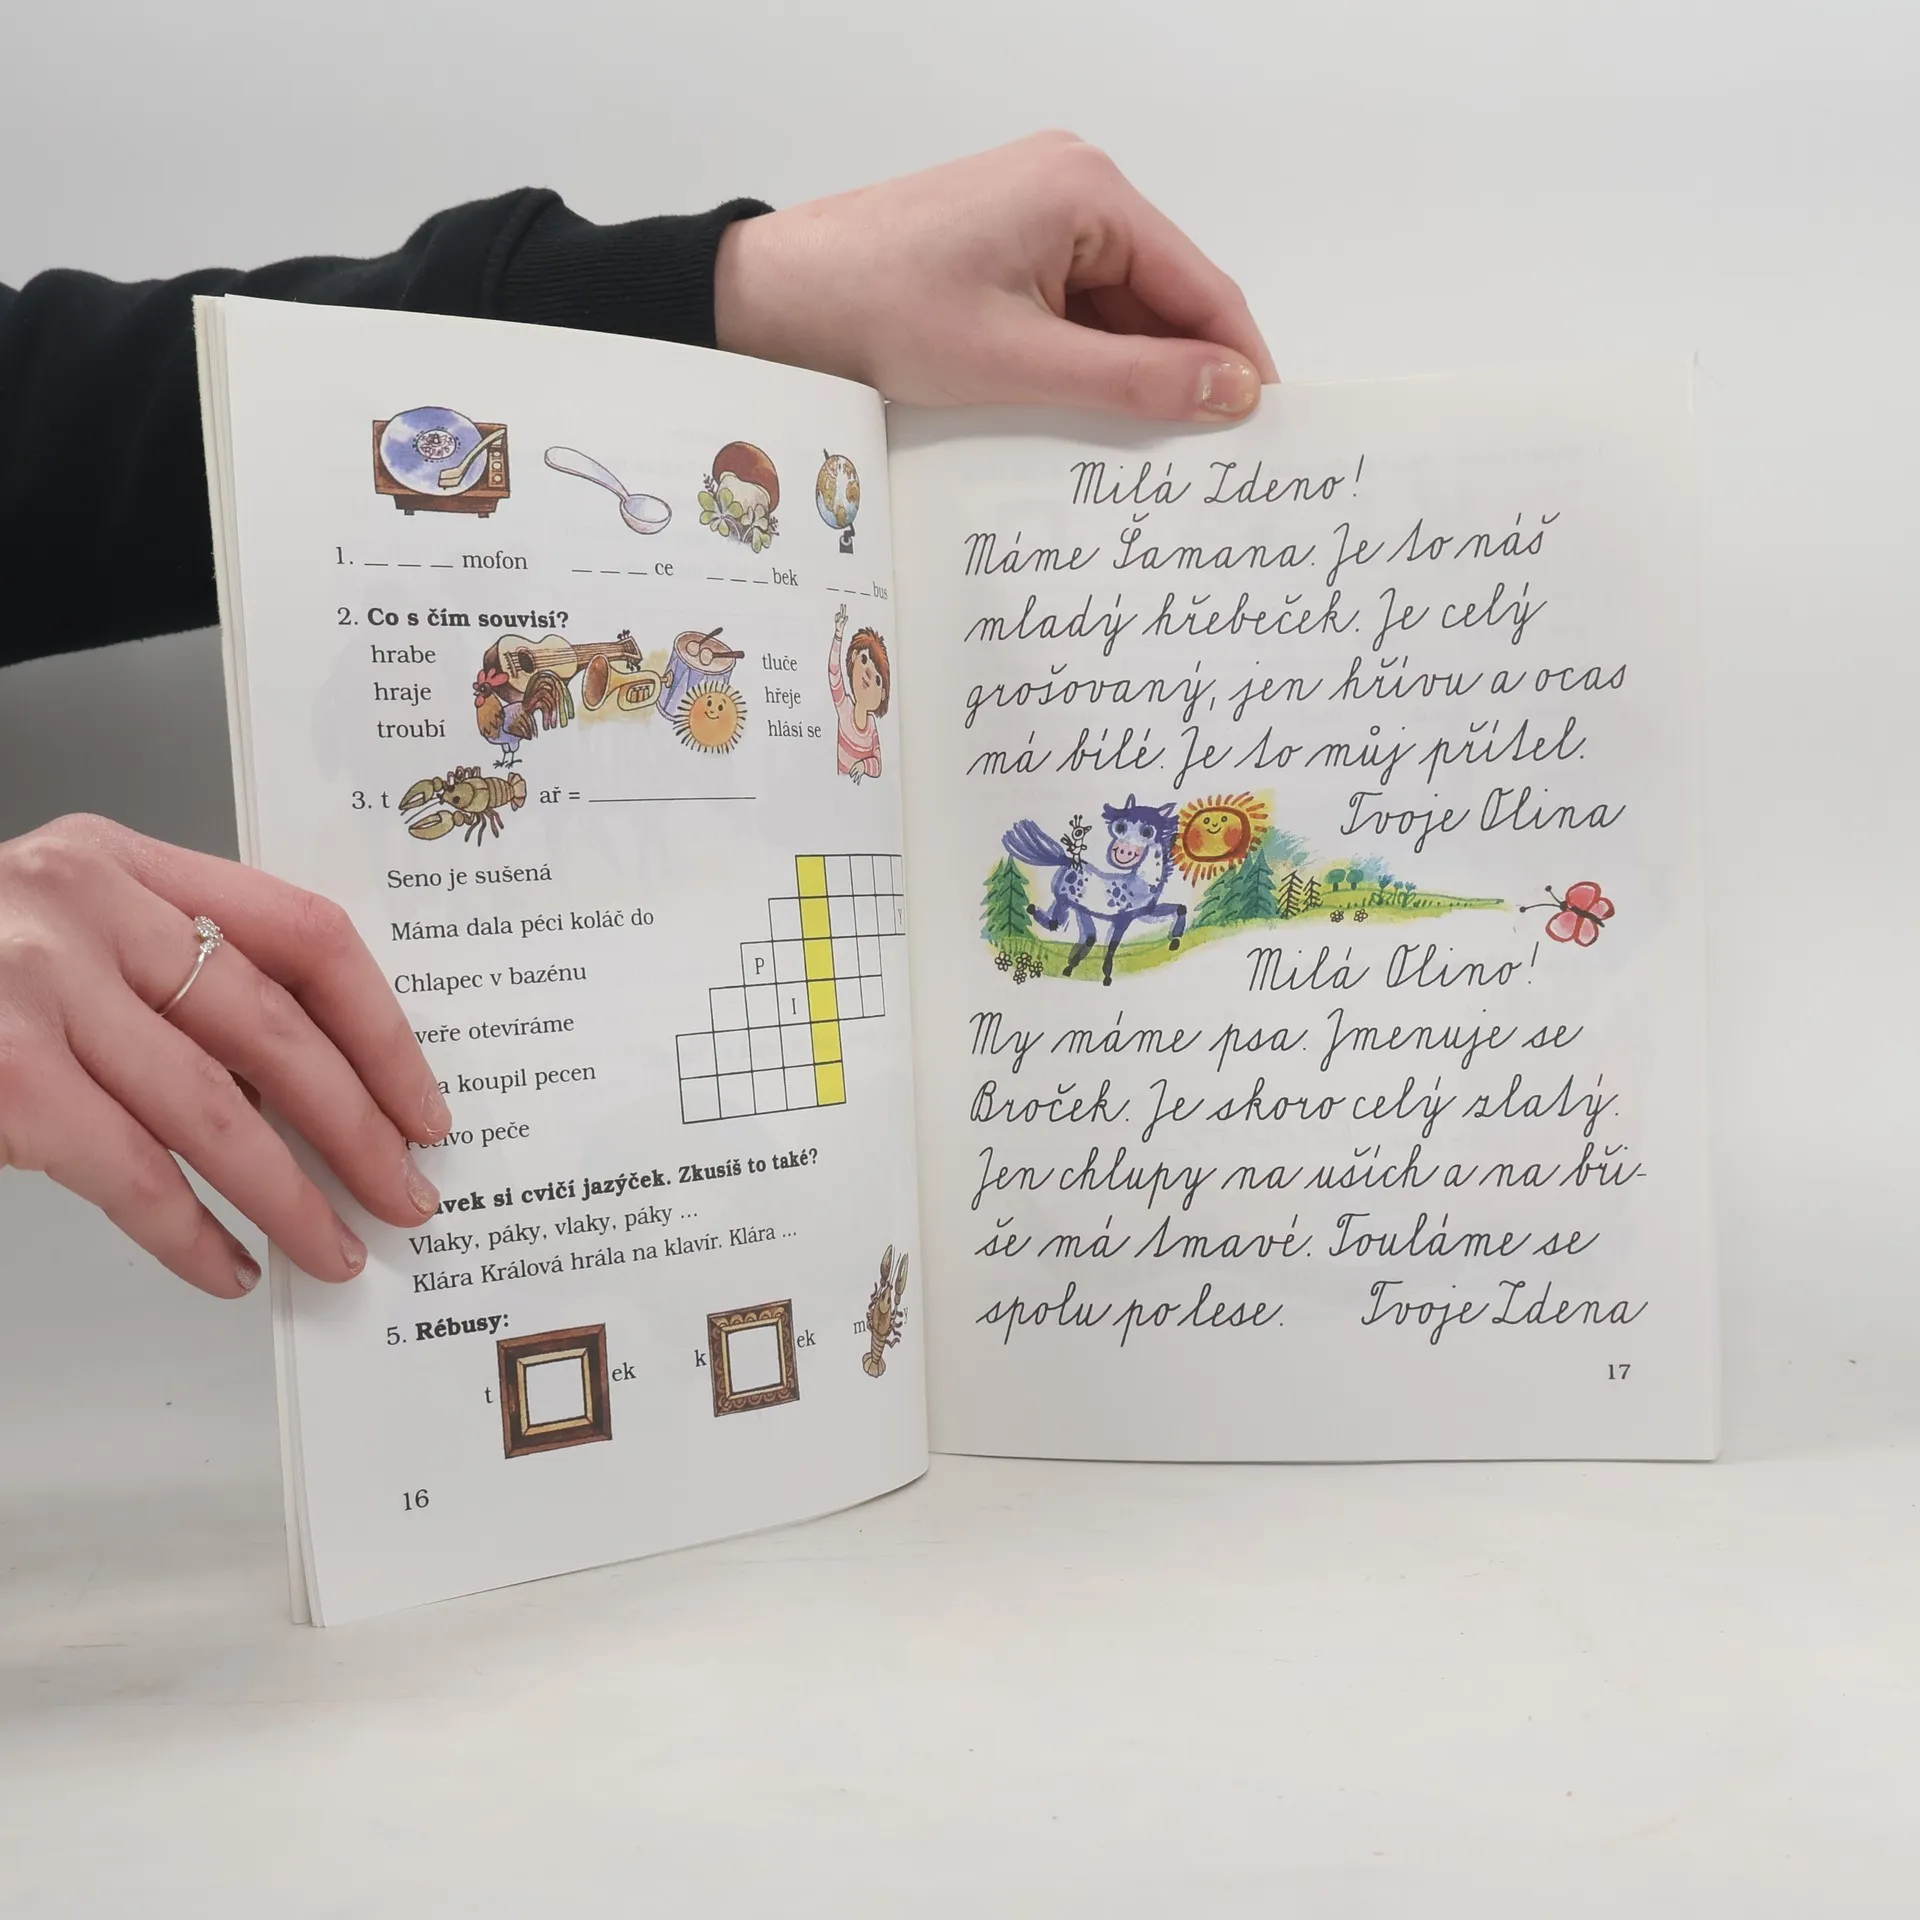 1. _ _ _ mofon _ _ _ ce _ _ _ bek _ _ _ bus
2. Co s čím souvisí?
hrabe
hraje
troubí
tluče
hřeje
hlásí se
3. t ař = ________
Seno je sušená
Máma dala péci koláč do
Chlapec v bazénu
veře otevíráme
a koupil pecen
peče
Y
P
I
ávek si cvičí jazýček. Zkusíš to také?
Vlaky, páky, vlaky, páky ...
Klára Králová hrála na klavír. Klára ...
5. Rébusy:
t ek k ek m y
16
Milá Zdeno!
Máme Šamana. Je to náš
mladý hřebeček. Je celý
grošovaný, jen hřívu a ocas
má bílé. Je to můj přítel.
Tvoje Olina
Milá Olino!
My máme psa. Jmenuje se
Broček. Je skoro celý zlatý.
Jen chlupy na uších a na bři-
še má tmavé. Touláme se
spolu po lese. Tvoje Zdena
17